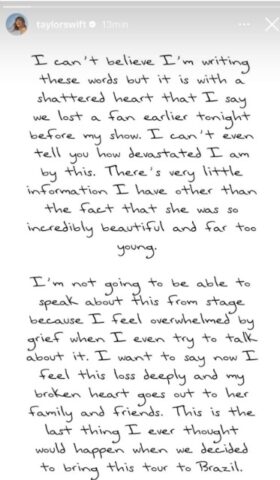 taylorswift 13min
I can't believe I'm writing
these words but it is with a
shattered heart that I say
we lost a fan earlier tonight
before my show. I can't even
tell you how devastated I am
by this. There's very little
information I have other than
the fact that she was so
incredibly beautiful and far too
young.
I'm not going to be able to
speak about this from stage
because I feel overwhelmed by
grief when I even try to talk
about it. I want to say now I
feel this loss deeply and my
broken heart goes out to her
family and friends. This is the
last thing I ever thought
would happen when we decided
to bring this tour to Brazil.